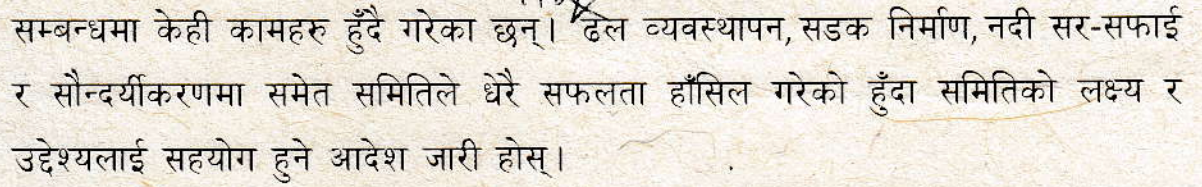 सम्बन्धमा केही कामहरु हुँदै गरेका छन्। ढल व्यवस्थापन, सडक निर्माण, नदी सर-सफाई
र सौन्दर्यीकरणमा समेत समितिले धेरै सफलता हाँसिल गरेको हुँदा समितिको लक्ष्य र
उद्देश्यलाई सहयोग हुने आदेश जारी होस्।